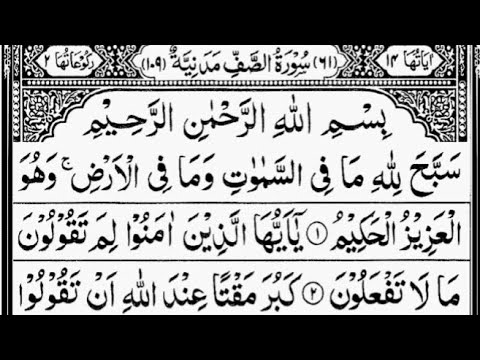 اٰيَاتُهَا ١٤ (٦١) سُوْرَةُ الصَّفِّ مَدَنِيَّةٌ (١٠٩) رُكُوْعَاتُهَا ٢
بِسْمِ اللّٰهِ الرَّحْمٰنِ الرَّحِيْمِ
سَبَّحَ لِلّٰهِ مَا فِى السَّمٰوٰتِ وَمَا فِى الْاَرْضِ ۚ وَهُوَ
الْعَزِيْزُ الْحَكِيْمُ ۝١ يٰۤاَيُّهَا الَّذِيْنَ اٰمَنُوْا لِمَ تَقُوْلُوْنَ
مَا لَا تَفْعَلُوْنَ ۝٢ كَبُرَ مَقْتًا عِنْدَ اللّٰهِ اَنْ تَقُوْلُوْا